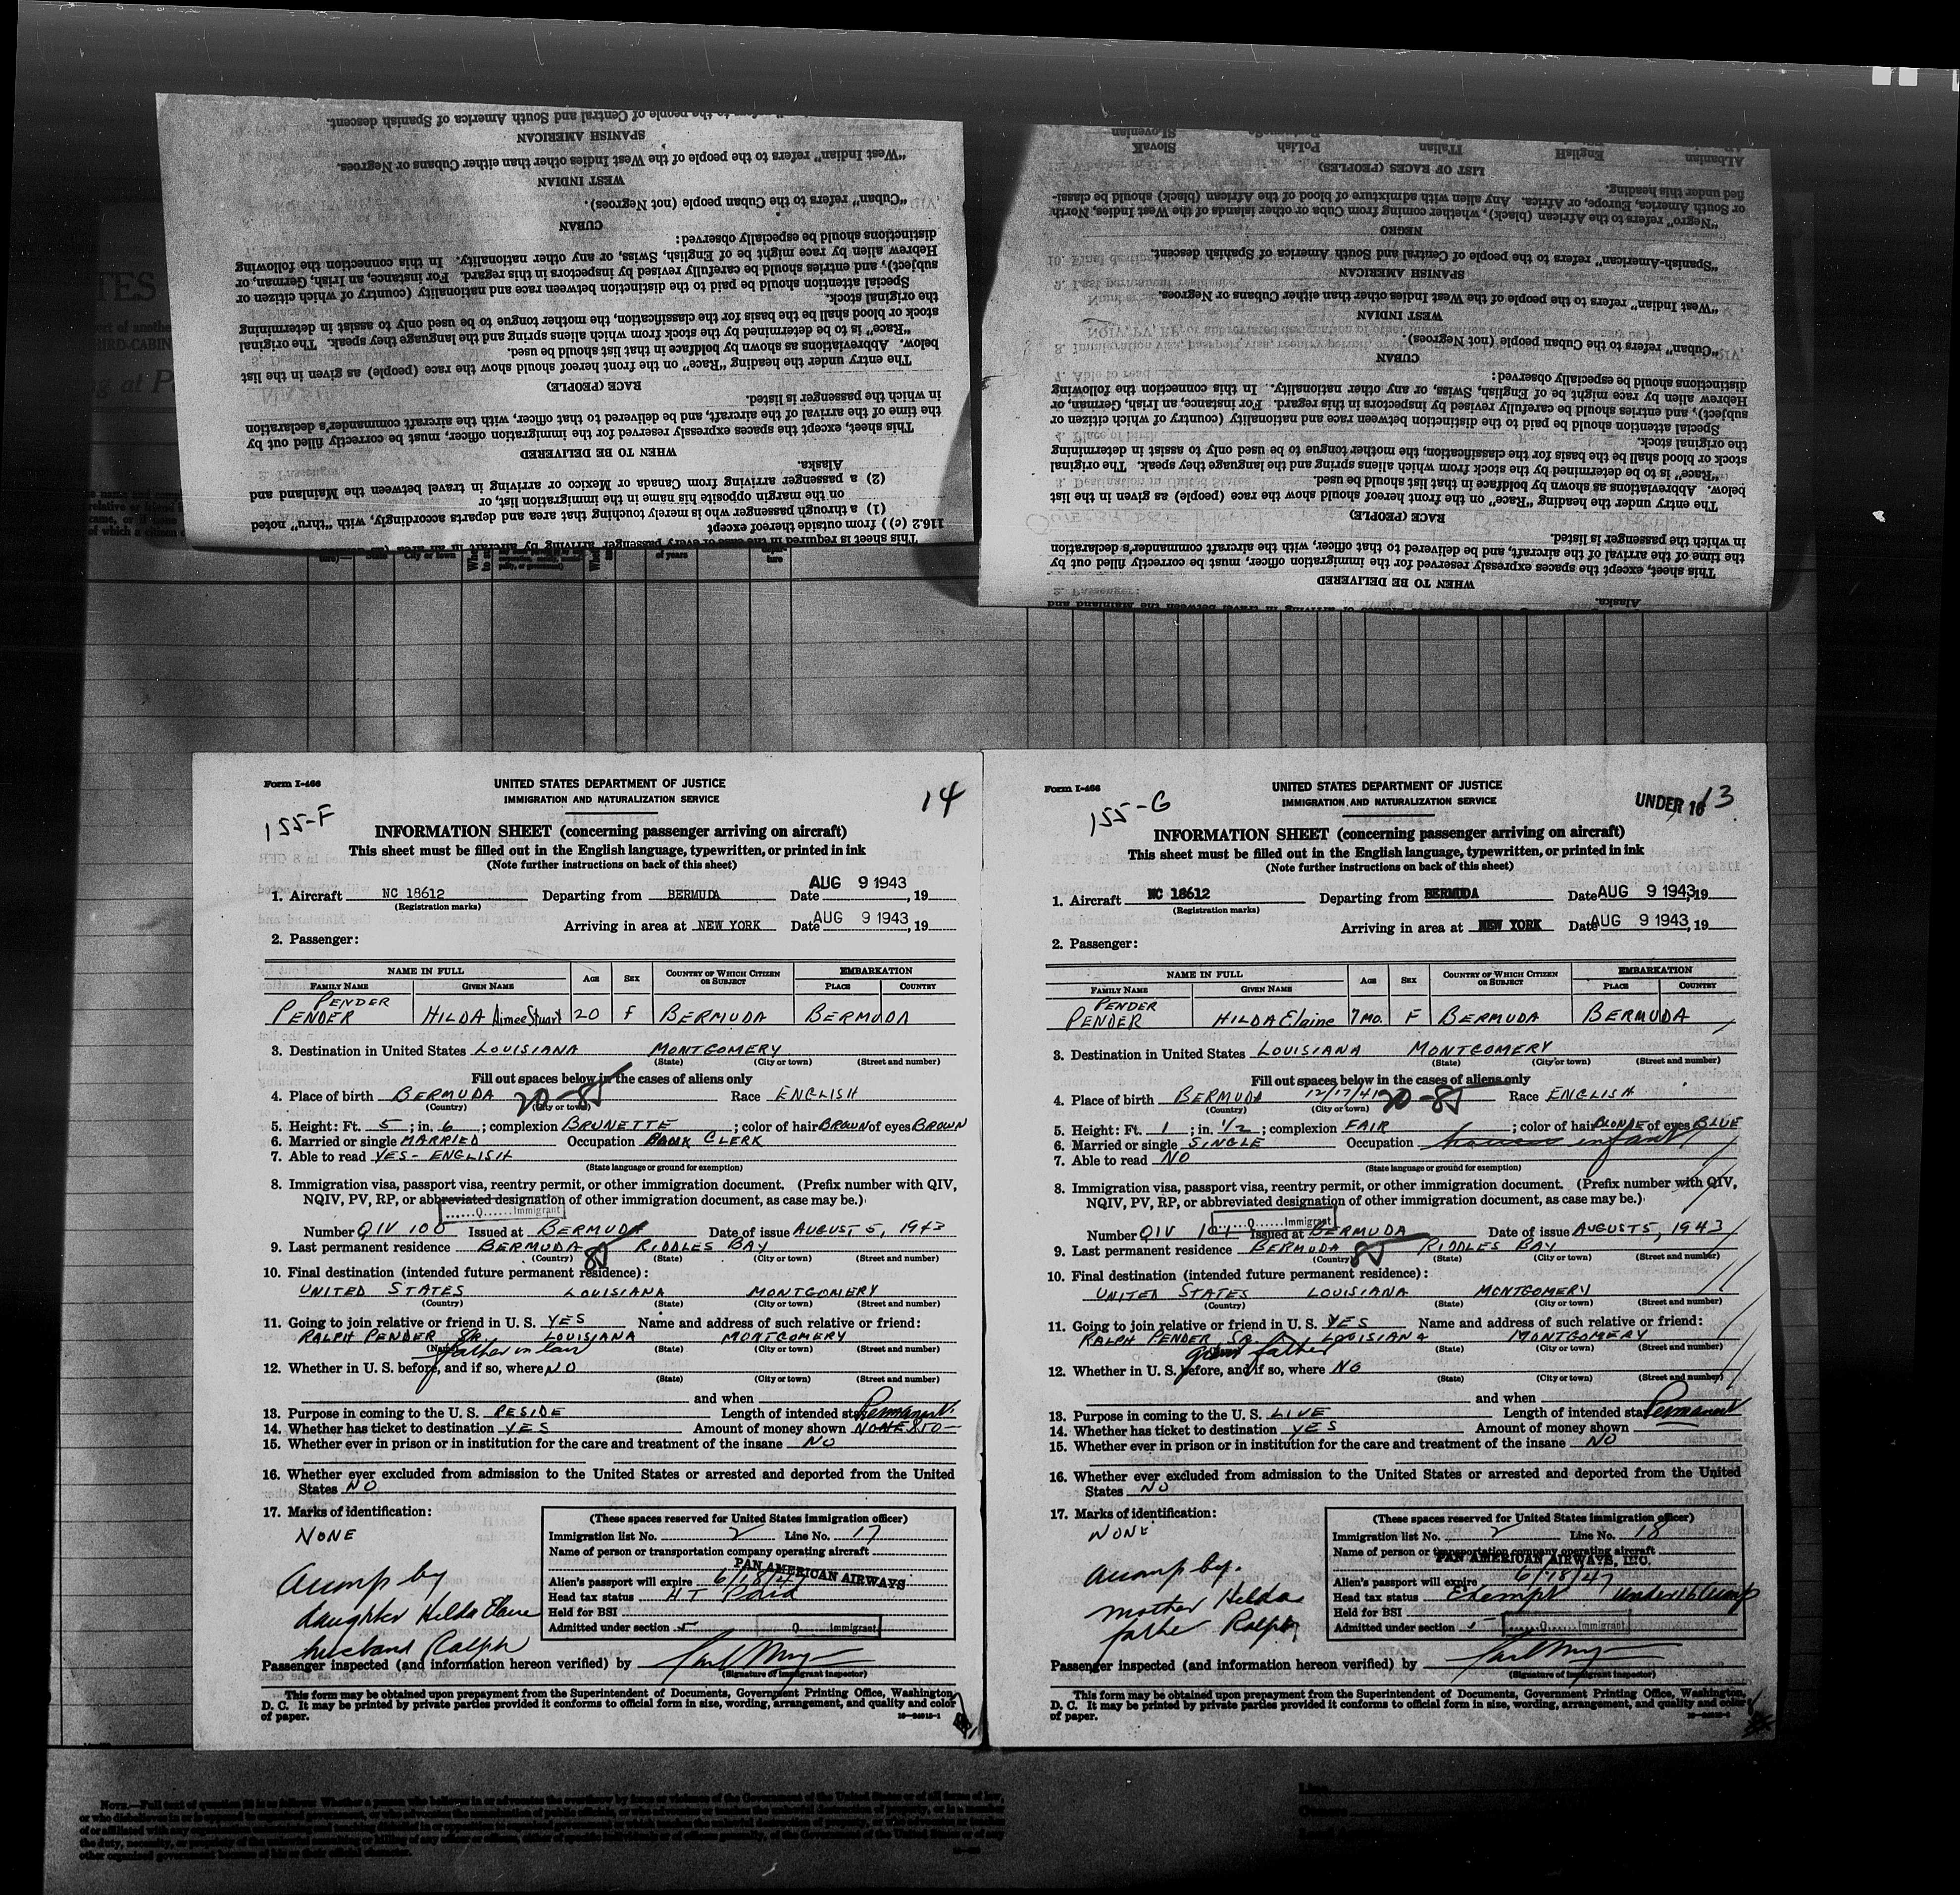 of people of Central and South America of Spanish descent.
SPANISH AMERICAN
"West Indian" refers to the people of the West Indies other than either Cubans or Negroes.
WEST INDIAN
"Cuban" refers to the Cuban people (not Negroes).
CUBAN
distinctions should be especially observed:
Hebrew alien by race might be of English, Swiss, or any other nationality. In this connection the following
subject), and entries should be carefully revised by inspectors in this regard. For instance, an Irish, German, or
Special attention should be paid to the distinction between race and nationality (country of which citizen or
the original stock.
stock or blood shall be the basis for the classification, the mother tongue to be used only to assist in determining
"Race" is to be determined by the stock from which aliens spring and the language they speak. The original
below. Abbreviations as shown by boldface in that list should be used.
The entry under the heading "Race" on the front hereof should show the race (people) as given in the list
RACE (PEOPLE)
in which the passenger is listed.
the time of the arrival of the aircraft, and be delivered to that officer, with the aircraft commander's declaration
This sheet, except the spaces expressly reserved for the immigration officer, must be correctly filled out by
WHEN TO BE DELIVERED
Alaska.
(2) a passenger arriving from Canada or Mexico or arriving in travel between the Mainland and
on the margin opposite his name in the immigration list, or
(1) a through passenger who is merely touching that area and departs accordingly, with "thru" noted
116.2 (c)) from outside thereof except
This sheet is required in the case of every passenger arriving by aircraft in an area
SLOVENIAN
ALbanian EnglisH ITalian PoLish SlovaK
LIST OF RACES (PEOPLES)
fied under this heading.
or South America, Europe, or Africa. Any alien with admixture of blood of the African (black) should be classi-
"Negro" refers to the African (black), whether coming from Cuba or other islands of the West Indies, North
NEGRO
"Spanish-American" refers to the people of Central and South America of Spanish descent.
SPANISH AMERICAN
"West Indian" refers to the people of the West Indies other than either Cubans or Negroes.
WEST INDIAN
"Cuban" refers to the Cuban people (not Negroes).
CUBAN
distinctions should be especially observed:
Hebrew alien by race might be of English, Swiss, or any other nationality. In this connection the following
subject), and entries should be carefully revised by inspectors in this regard. For instance, an Irish, German, or
Special attention should be paid to the distinction between race and nationality (country of which citizen or
the original stock.
stock or blood shall be the basis for the classification, the mother tongue to be used only to assist in determining
"Race" is to be determined by the stock from which aliens spring and the language they speak. The original
below. Abbreviations as shown by boldface in that list should be used.
The entry under the heading "Race" on the front hereof should show the race (people) as given in the list
RACE (PEOPLE)
in which the passenger is listed.
the time of the arrival of the aircraft, and be delivered to that officer, with the aircraft commander's declaration
This sheet, except the spaces expressly reserved for the immigration officer, must be correctly filled out by
WHEN TO BE DELIVERED
Alaska.
Form I-466
UNITED STATES DEPARTMENT OF JUSTICE
IMMIGRATION AND NATURALIZATION SERVICE
14
155-F
INFORMATION SHEET (concerning passenger arriving on aircraft)
This sheet must be filled out in the English language, typewritten, or printed in ink
(Note further instructions on back of this sheet)
1. Aircraft NC 18612 Departing from BERMUDA Date AUG 9 1943, 19
(Registration marks)
Arriving in area at NEW YORK Date AUG 9 1943, 19
2. Passenger:
NAME IN FULL AGE SEX COUNTRY OF WHICH CITIZEN OR SUBJECT EMBARKATION
FAMILY NAME GIVEN NAME PLACE COUNTRY
PENDER
PENDER HILDA Aimee Stuart 20 F BERMUDA BERMUDA
3. Destination in United States LOUISIANA MONTGOMERY
(State) (City or town) (Street and number)
Fill out spaces below in the cases of aliens only
4. Place of birth BERMUDA 20-85 Race ENGLISH
(Country) (City or town)
5. Height: Ft. 5; in. 6; complexion BRUNETTE; color of hair BROWN of eyes BROWN
6. Married or single MARRIED Occupation BANK CLERK
7. Able to read YES - ENGLISH
(State language or ground for exemption)
8. Immigration visa, passport visa, reentry permit, or other immigration document. (Prefix number with QIV,
NQIV, PV, RP, or abbreviated designation of other immigration document, as case may be.)
Q Immigrant
Number QIV 100 Issued at BERMUDA Date of issue AUGUST 5, 1943
9. Last permanent residence BERMUDA 85 RIDDLES BAY
(Country) (City or town) (Street and number)
10. Final destination (intended future permanent residence):
UNITED STATES LOUISIANA MONTGOMERY
(Country) (State) (City or town) (Street and number)
11. Going to join relative or friend in U. S. YES Name and address of such relative or friend:
RALPH PENDER SR. LOUISIANA MONTGOMERY
(Name) father in law (State) (City or town) (Street and number)
12. Whether in U. S. before, and if so, where NO
(State) (City or town) (Street and number)
and when
13. Purpose in coming to the U. S. RESIDE Length of intended stay Permanent
14. Whether has ticket to destination YES Amount of money shown NONE
15. Whether ever in prison or in institution for the care and treatment of the insane NO
16. Whether ever excluded from admission to the United States or arrested and deported from the United
States NO
17. Marks of identification:
NONE
Accomp by
daughter Hilda Elaine
husband Ralph
(These spaces reserved for United States immigration officer)
Immigration list No. 2 Line No. 17
Name of person or transportation company operating aircraft
PAN AMERICAN AIRWAYS
Alien's passport will expire 6/18/47
Head tax status HT Paid
Held for BSI
Admitted under section 5 Q Immigrant
Passenger inspected (and information hereon verified) by
(Signature of immigrant inspector)
This form may be obtained upon prepayment from the Superintendent of Documents, Government Printing Office, Washington,
D. C. It may be printed by private parties provided it conforms to official form in size, wording, arrangement, and quality and color
of paper.
Form I-466
UNITED STATES DEPARTMENT OF JUSTICE
IMMIGRATION AND NATURALIZATION SERVICE
UNDER 16 13
155-G
INFORMATION SHEET (concerning passenger arriving on aircraft)
This sheet must be filled out in the English language, typewritten, or printed in ink
(Note further instructions on back of this sheet)
1. Aircraft NC 18612 Departing from BERMUDA Date AUG 9 1943, 19
(Registration marks)
Arriving in area at NEW YORK Date AUG 9 1943, 19
2. Passenger:
NAME IN FULL AGE SEX COUNTRY OF WHICH CITIZEN OR SUBJECT EMBARKATION
FAMILY NAME GIVEN NAME PLACE COUNTRY
PENDER
PENDER HILDA Elaine 7 MO. F BERMUDA BERMUDA
3. Destination in United States LOUISIANA MONTGOMERY
(State) (City or town) (Street and number)
Fill out spaces below in the cases of aliens only
4. Place of birth BERMUDA 12/17/41 20-85 Race ENGLISH
(Country) (City or town)
5. Height: Ft. 1; in. 1/2; complexion FAIR; color of hair BLONDE of eyes BLUE
6. Married or single SINGLE Occupation infant
7. Able to read NO
(State language or ground for exemption)
8. Immigration visa, passport visa, reentry permit, or other immigration document. (Prefix number with QIV,
NQIV, PV, RP, or abbreviated designation of other immigration document, as case may be.)
Q Immigrant
Number QIV 101 Issued at BERMUDA Date of issue AUGUST 5, 1943
9. Last permanent residence BERMUDA 85 RIDDLES BAY
(Country) (City or town) (Street and number)
10. Final destination (intended future permanent residence):
UNITED STATES LOUISIANA MONTGOMERY
(Country) (State) (City or town) (Street and number)
11. Going to join relative or friend in U. S. YES Name and address of such relative or friend:
RALPH PENDER SR. LOUISIANA MONTGOMERY
grand father (State) (City or town) (Street and number)
12. Whether in U. S. before, and if so, where NO
(State) (City or town) (Street and number)
and when
13. Purpose in coming to the U. S. LIVE Length of intended stay Permanent
14. Whether has ticket to destination YES Amount of money shown
15. Whether ever in prison or in institution for the care and treatment of the insane NO
16. Whether ever excluded from admission to the United States or arrested and deported from the United
States NO
17. Marks of identification:
NONE
accomp by.
mother Hilda
father Ralph
(These spaces reserved for United States immigration officer)
Immigration list No. 2 Line No. 18
Name of person or transportation company operating aircraft
PAN AMERICAN AIRWAYS, INC.
Alien's passport will expire 6/18/47
Head tax status Exempt Under 16 Accomp
Held for BSI
Admitted under section Q Immigrant
Passenger inspected (and information hereon verified) by
(Signature of immigrant inspector)
This form may be obtained upon prepayment from the Superintendent of Documents, Government Printing Office, Washington,
D. C. It may be printed by private parties provided it conforms to official form in size, wording, arrangement, and quality and color
of paper.